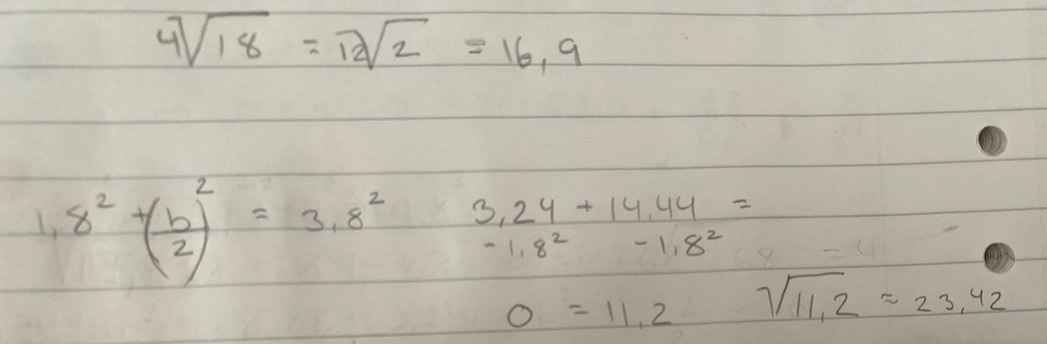 4√18 = 12√2 = 16,9
1,8² + (b/2)² = 3,8² 3,24 + 14,44 =
-1,8² -1,8²
0 = 11,2 √11,2 ≈ 23,42